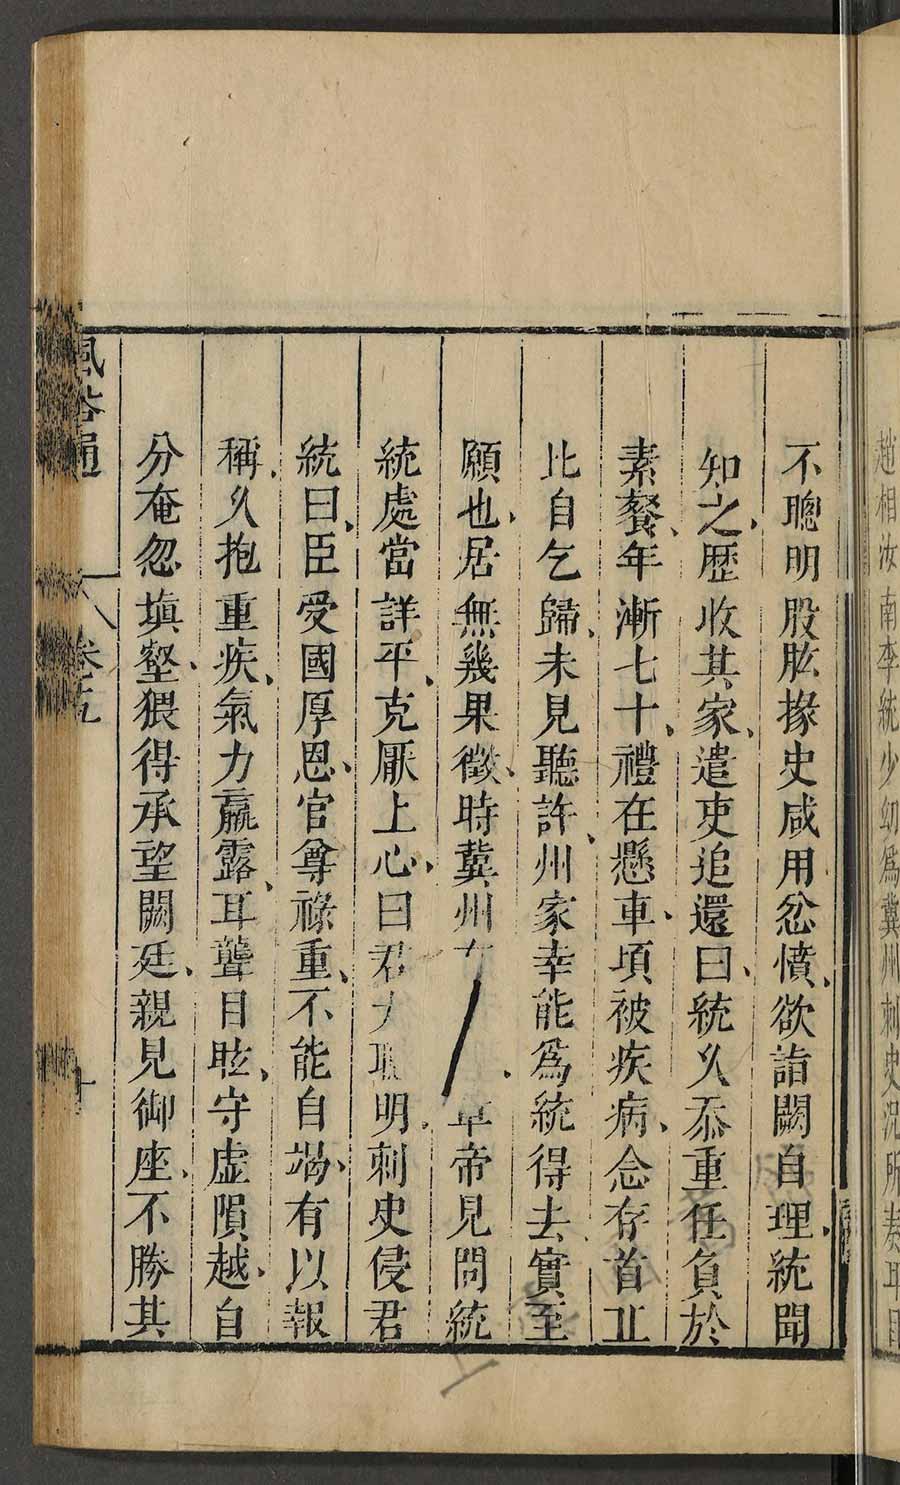 趙相汝南李統少幼爲冀州刺史況所奏耳目
不聰明股肱掾史咸用忿憤欲詣闕自理統聞
知之歷收其家遣吏追還曰統久忝重任負於
素餐年漸七十禮在懸車頃被疾病念存首丘
比自乞歸未見聽許州家幸能爲統得去實至
願也居無幾果徵時冀州 章帝見問統
統處當詳平克厭上心曰君大聰明刺史侵君
統曰臣受國厚恩官尊祿重不能自竭有以報
稱久抱重疾氣力羸露耳聾目眩守虛隕越自
分奄忽填壑猥得承望闕廷親見御座不勝其
風俗通
卷五
十